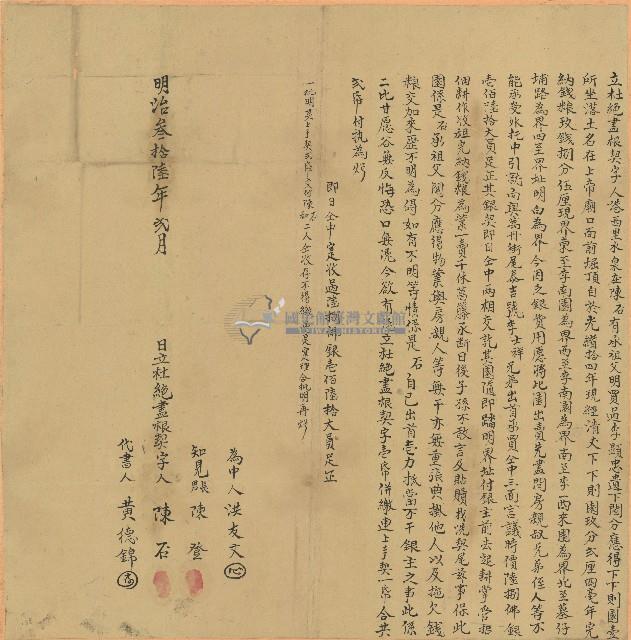 立杜絕盡根契字人港西里水泉庄陳石有承祖父明買過李顯忠遺下鬮分應得下下則園壹
所坐落土名在上帝廟口南前崛頂自於光緒拾四年現經清丈下下則園玖分弍厘四毫年完
納錢粮玖錢捌分伍厘現界東至李南園為界西至李南園為界南至李一西來園為界北至墓仔
埔路為界四至界址明白為界今因乏銀費用應將此園出賣先盡問房親叔兄弟侄人等不
能承受外托中引就向與萬丹街尾泰吉號李士祥兄弟出首承買仝中三面言議時價陸捌佛銀
壹佰陸拾大員足正其銀契即日仝中兩相交訖其園隨即踏明界址付銀主前去起耕掌管招
佃耕作收租完納錢粮為業一賣千休葛籐永斷日後子孫不敢言及貼贖找洗契尾等事保此
園係是石承祖父鬮分應得物業與房親人等無干亦無重張典掛他人以及拖欠錢
粮交加來歷不明為碍如有不明等情係是石自己出首壹力抵當不干銀主之事此係
二比甘愿各無反悔恐口無憑今欲有憑立杜絕盡根契字壹帋併繳連上手契一帋合共
弍帋付執為炤
即日仝中實收過陸捌佛銀壹佰陸拾大員足正
明治叁拾陸年弍月
日立杜絕盡根契字人 陳石
為中人 洪友文
知見 陳登
代書人 黃德錦
國史館臺灣文獻館
TAIWAN HISTORICA